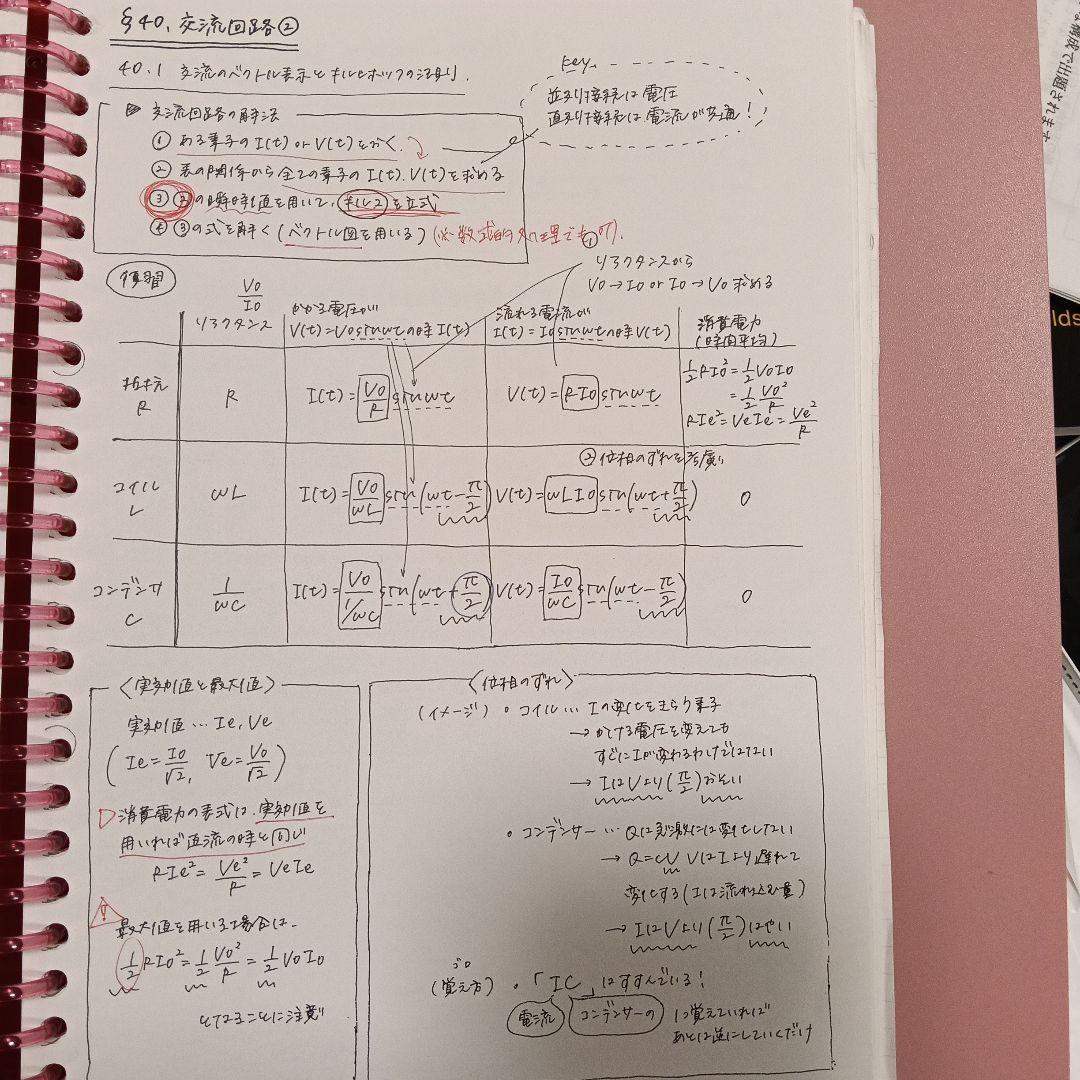 §40. 交流回路②
40.1 交流のベクトル表示とキルヒホッフの法則.
key
並列接続は電圧
直列接続は電流が共通!
交流回路の解法
① ある素子のI(t) or V(t)をおく.
② 表の関係から全ての素子のI(t), V(t)を求める
③ ②の瞬時値を用いて, キル2を立式
④ ③の式を解く(ベクトル図を用いる) (※数式的処理でも可).
① リアクタンスから
V0→I0 or I0→V0求める
復習
V0/I0
リアクタンス
かかる電圧が
V(t)=V0sinωtの時I(t)
流れる電流が
I(t)=I0sinωtの時V(t)
消費電力
(時間平均)
抵抗 R
R
I(t)=V0/R sinωt
V(t)=RI0 sinωt
1/2RI0²=1/2V0I0
=1/2 V0²/R
RIe²=VeIe=Ve²/R
② 位相のずれを考慮
コイル L
ωL
I(t)=V0/ωL sin(ωt-π/2)
V(t)=ωLI0 sin(ωt+π/2)
0
コンデンサ C
1/ωC
I(t)=V0/1/ωC sin(ωt+π/2)
V(t)=I0/ωC sin(ωt-π/2)
0
〈実効値と最大値〉
実効値…Ie, Ve
(Ie=I0/√2, Ve=V0/√2)
消費電力の表式は, 実効値を
用いれば直流の時と同じ
RIe²=Ve²/R=VeIe
最大値を用いる場合は.
1/2RI0²=1/2 V0²/R=1/2V0I0
となることに注意
〈位相のずれ〉
(イメージ)
・コイル…Iの変化をきらう素子
→かける電圧を変えても
すぐにIが変わるわけではない
→IはVより(π/2)おそい
・コンデンサー…Qは急激には変化しない
→Q=CV VはIより遅れて
変化する(Iは流れ込む量)
→IはVより(π/2)はやい
ゴロ
(覚え方)
・「IC」はすすんでいる!
電流
コンデンサーの
1つ覚えていれば
あとは逆にしていくだけ
な構成で出題されます
lds